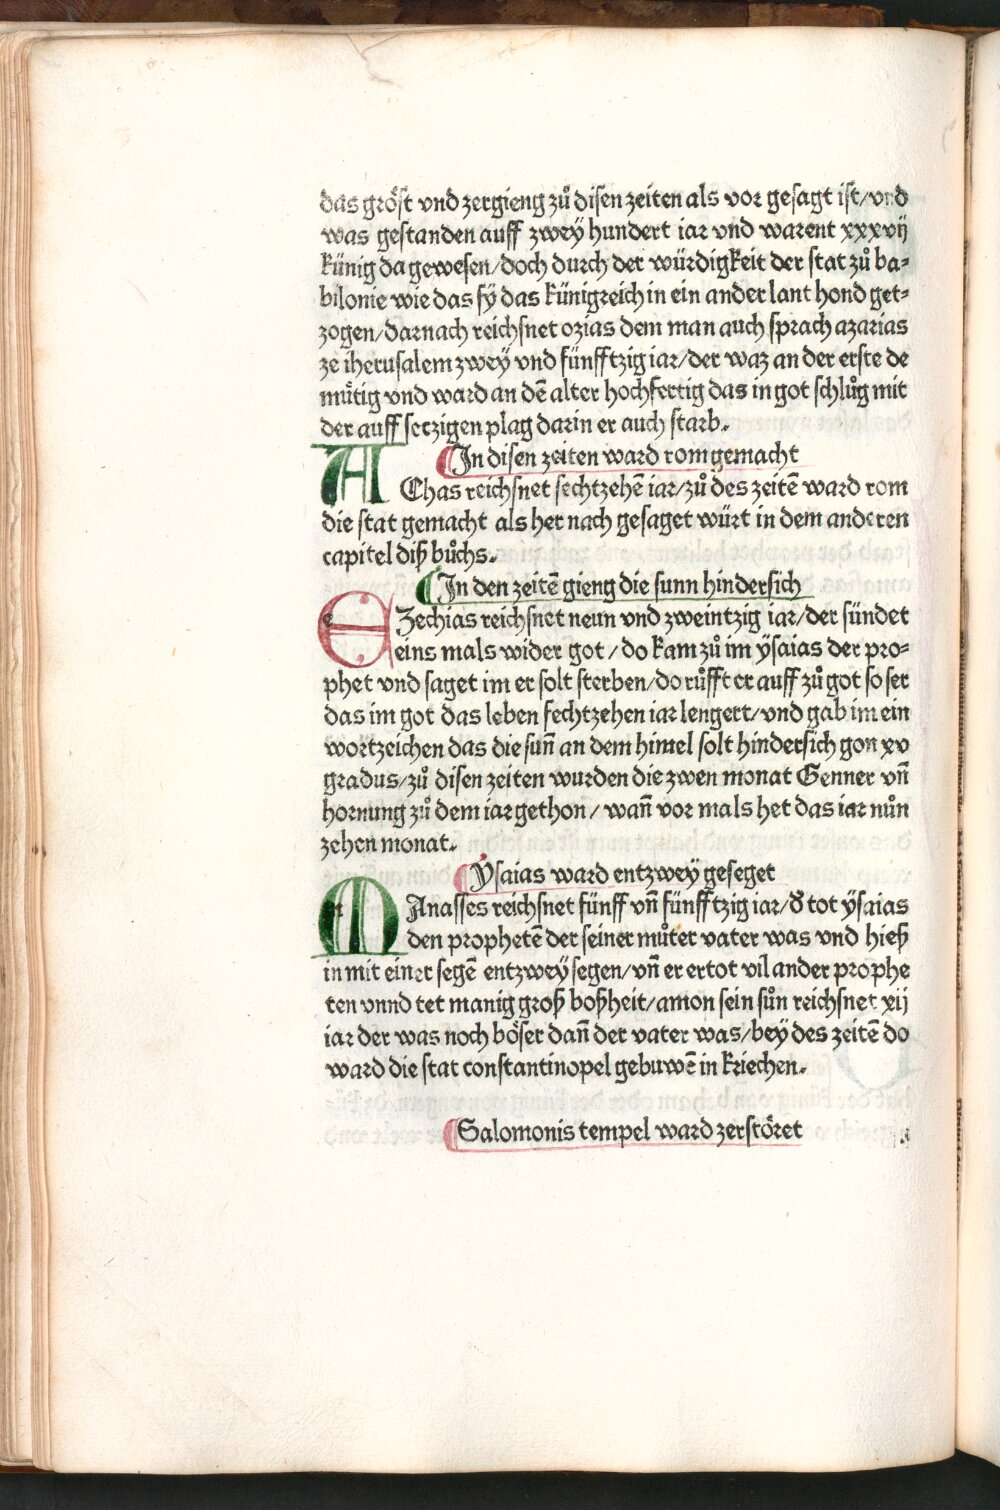 das gröst vnd zergieng zů disen zeiten als vor gesagt ist/vnd
was gestanden auff zwey hundert iar vnd warent xxxvij
künig da gewesen/doch durch der würdigkeit der stat zů ba⸗
bilonie wie das sÿ das künigreich in ein ander lant hond get⸗
zogen/darnach reichsnet ozias dem man auch sprach azarias
ze iherusalem zweÿ vnd fünfftzig iar/der waz an der erste de
můtig vnd ward an dē alter hochfertig das in got schlůg mit
der auff setzigen plag darin er auch starb.
In disen zeiten ward rom gemacht
AChas reichsnet sechtzehē iar/zů des zeitē ward rom
die stat gemacht als her nach gesaget würt in dem anderen
capitel diß bůchs.
In den zeitē gieng die sunn hindersich
EZechias reichsnet neun vnd zweintzig iar/der sündet
eins mals wider got/do kam zů im ÿsaias der pro⸗
phet vnd saget im er solt sterben/do růfft er auff zů got so ser
das im got das leben fechtzehen iar lengert/vnd gab im ein
wortzeichen das die sun̄ an dem himel solt hindersich gon xv
gradus/zů disen zeiten wurden die zwen monat Genner vn̄
hornung zů dem iar gethon/wan̄ vor mals het das iar nůn
zehen monat.
Ÿsaias ward entzweÿ geseget
MAnasses reichsnet fünff vn̄ fünfftzig iar/đ tot ÿsaias
den prophetē der seiner můter vater was vnd hieß
in mit einer segē entzweÿ segen/vn̄ er ertot vil ander prophe
ten vnnd tet manig groß boßheit/amon sein sůn reichsnet xij
iar der was noch böser dan̄ der vater was/beÿ des zeitē do
ward die stat constantinopel gebuwē in kriechen.
Salomonis tempel ward zerstöret